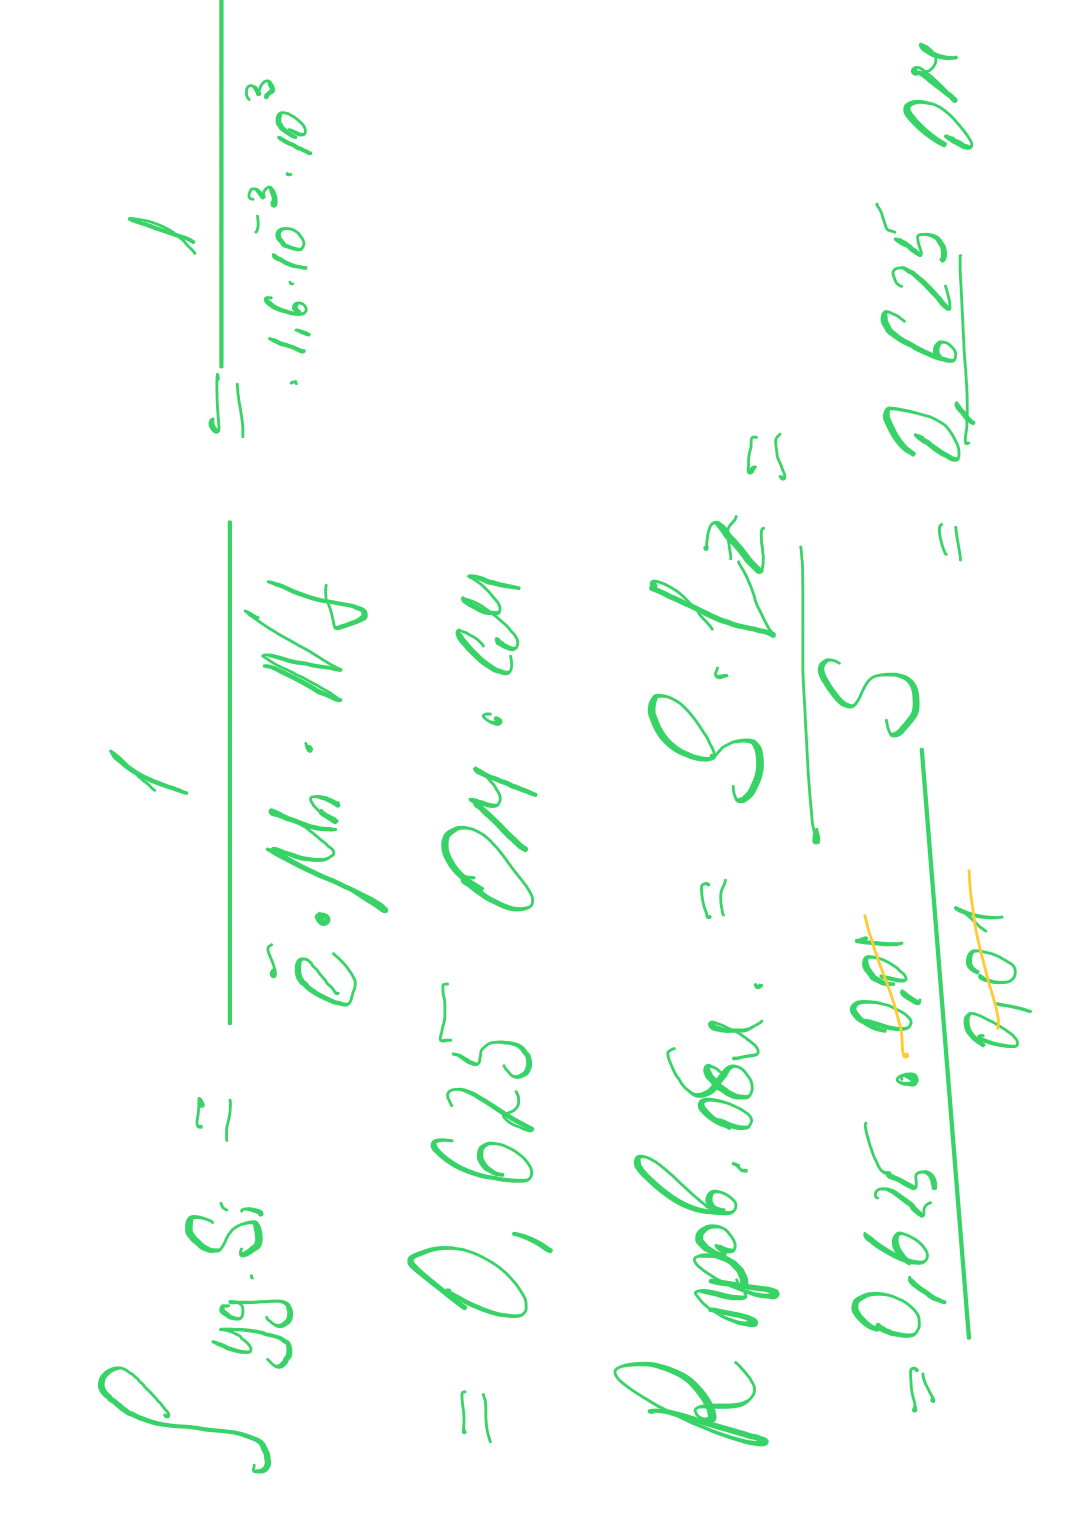 ρ уд. Si = 1 / (e · μn · Nd) = 1 / (· 1,6 · 10⁻³ · 10³)
= 0,625 Ом · см
R пров. обл. = ρ · L / S =
= 0,625 · 0,01 / 0,01 = 0,625 Ом